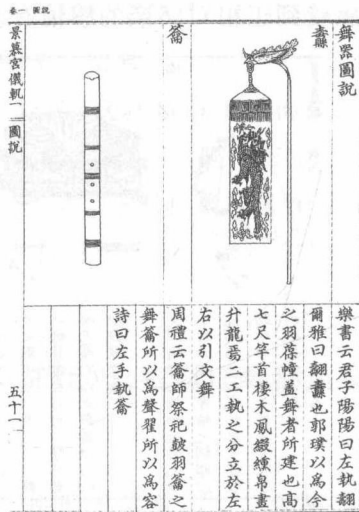 卷一 圖說
舞器圖說
纛
籥
景慕宮儀軌一 圖說
樂書云君子陽陽曰左執翿
爾雅曰翿纛也郭璞以爲今
之羽葆幢蓋舞者所建也高
七尺竿首棲木鳳綴纁帛畫
升龍焉二工執之分立於左
右以引文舞
周禮云籥師祭祀鼓羽籥之
舞籥所以爲聲翟所以爲容
詩曰左手執籥
五十一